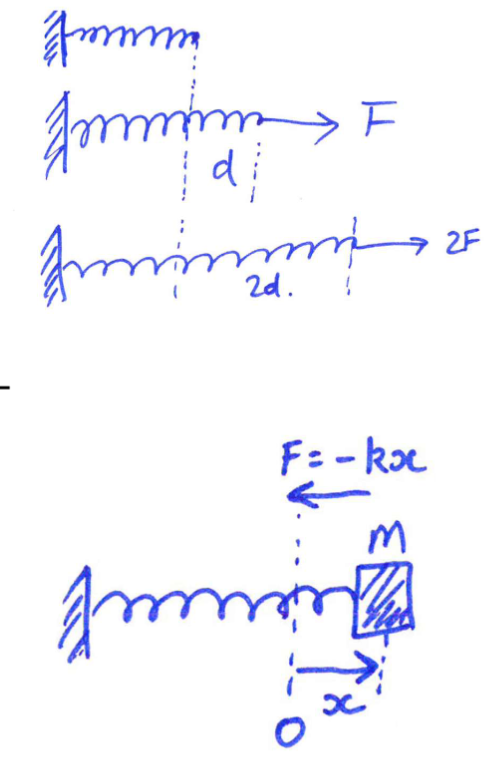 F
d
2F
2d.
F = -kx
m
x
O